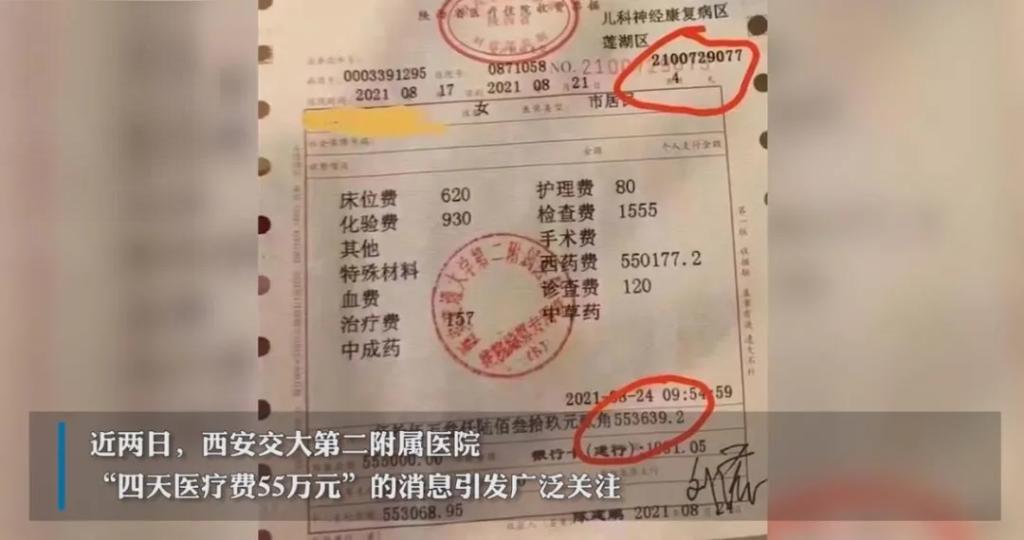 儿科神经康复病区
莲湖区
2100729077
0003391295
0871058 NO.
2021 08 17
2021 08 21
4
女
市居民
金额
个人支付金额
床位费 620 护理费 80
化验费 930 检查费 1555
其他 手术费
特殊材料 西药费 550177.2
血费 诊查费 120
治疗费 157 中草药
中成药
2021-08-24 09:54:59
伍拾伍万叁仟陆佰叁拾玖元贰角553639.2
555000.00 银行卡(建行):1931.05
553068.95
2021 08 24
近两日，西安交大第二附属医院
“四天医疗费55万元”的消息引发广泛关注